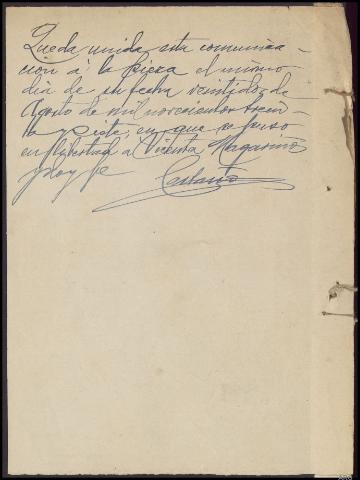 Queda unida esta comunica-
ción á la pieza el mismo
dia de su fecha veintidos de
Agosto de mil novecientos trein-
ta y siete, en que se puso
en libertad a Vicenta Magariño
y doy fe